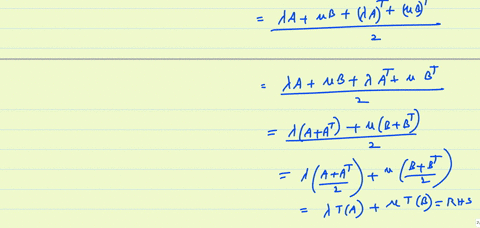 = λA + μB + (λA)^T + (μB)^T / 2
= λA + μB + λA^T + μB^T / 2
= λ(A+A^T) + μ(B+B^T) / 2
= λ(A+A^T / 2) + μ(B+B^T / 2)
= λT(A) + μT(B) = RHS